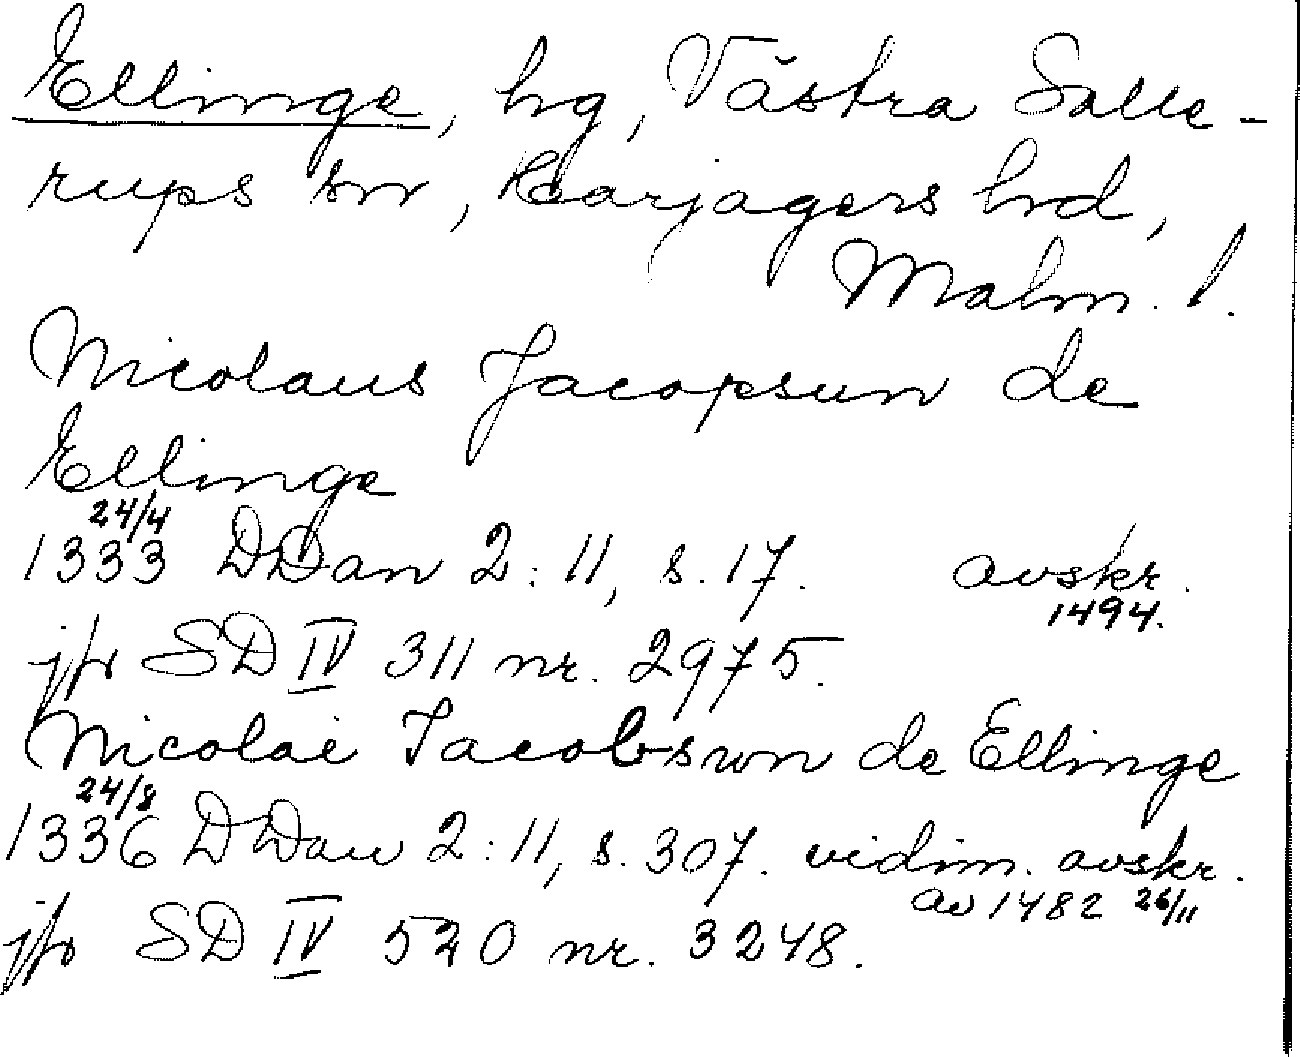 Ellinge, hg, Västra Salle-
rups sn, Harjagers hrd,
Malm. l.
Nicolaus Jacopsun de
Ellinge
24/4
1333 DDan 2:11, s. 17. avskr.
1494.
jfr SD IV 311 nr. 2975.
Nicolai Jacobswn de Ellinge
24/8
1336 DDan 2:11, s. 307. vidim. avskr.
av 1482 26/11
jfr SD IV 520 nr. 3248.